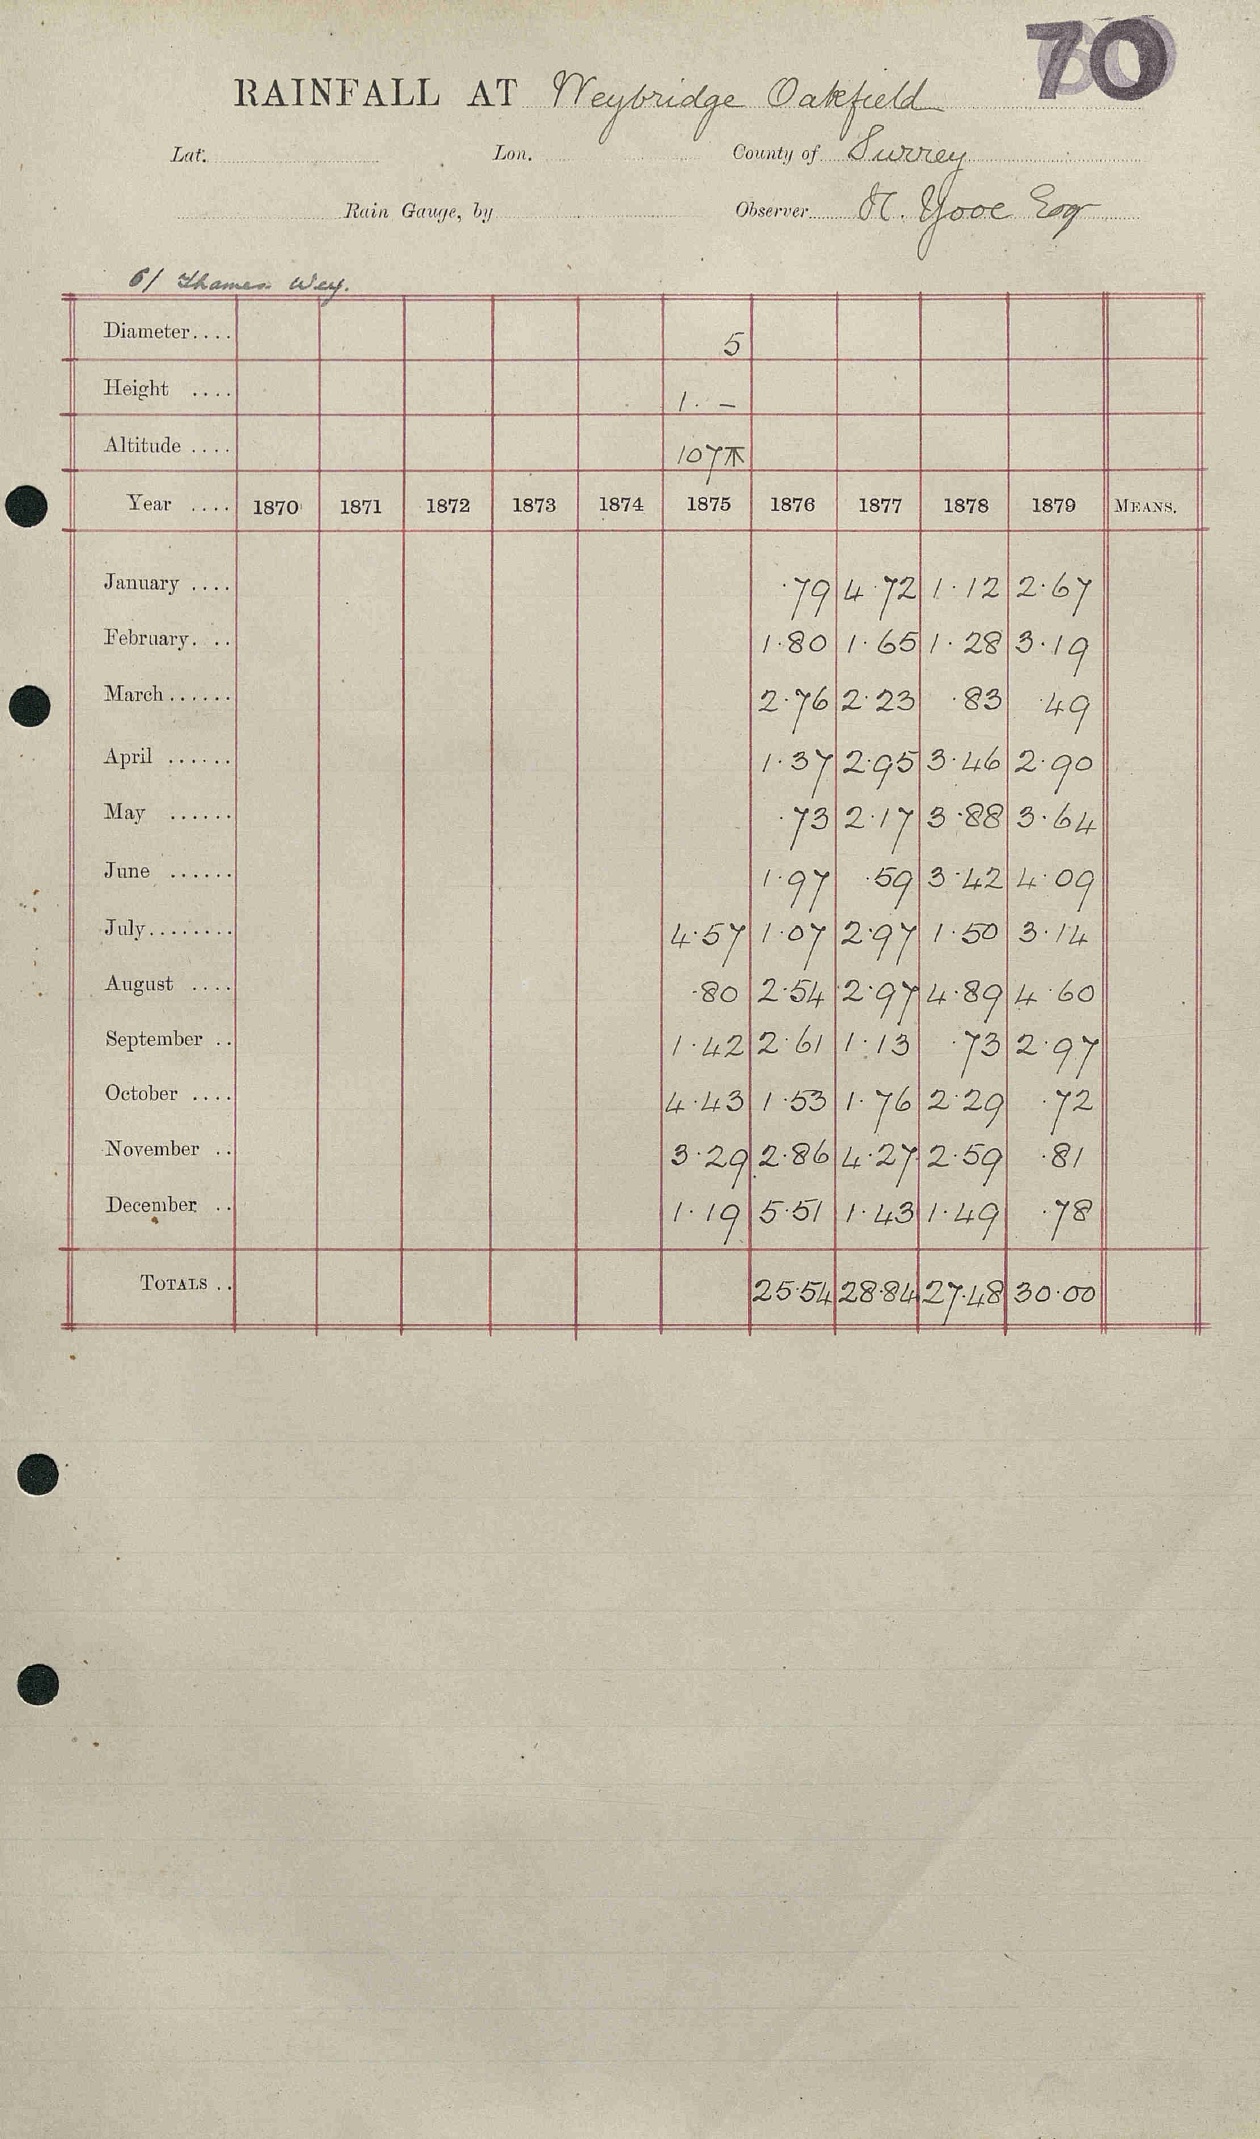 70
RAINFALL AT Weybridge Oakfield
Lat. Lon. County of Surrey
Rain Gauge, by Observer H. Yool Esq
6/ Thames Wey.
Diameter.... 5
Height .... 1. –
Altitude .... 107
Year .... 1870 1871 1872 1873 1874 1875 1876 1877 1878 1879 MEANS.
January .... ·79 4·72 1·12 2·67
February. .. 1·80 1·65 1·28 3·19
March...... 2·76 2·23 ·83 ·49
April ...... 1·37 2·95 3·46 2·90
May ...... ·73 2·17 3·88 3·64
June ...... 1·97 ·59 3·42 4·09
July........ 4·57 1·07 2·97 1·50 3·14
August .... ·80 2·54 2·97 4·89 4·60
September .. 1·42 2·61 1·13 ·73 2·97
October .... 4·43 1·53 1·76 2·29 ·72
November .. 3·29 2·86 4·27 2·59 ·81
December .. 1·19 5·51 1·43 1·49 ·78
TOTALS .. 25·54 28·84 27·48 30·00